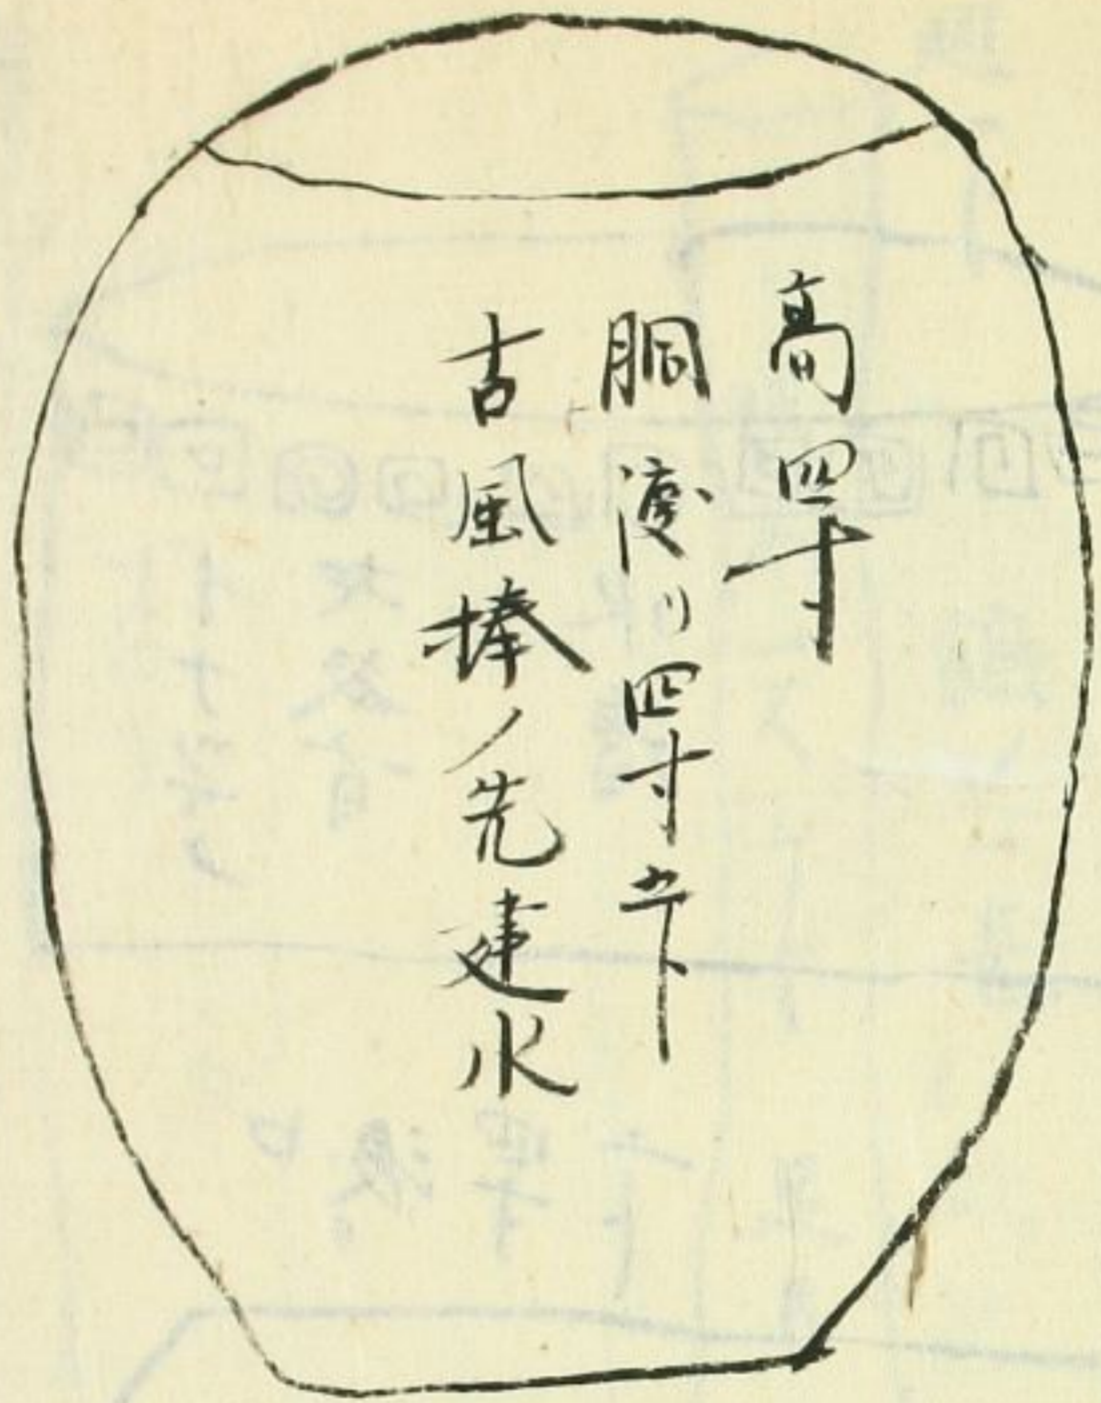 高四寸
胴渡リ四寸五卜
古風捧ノ先建水